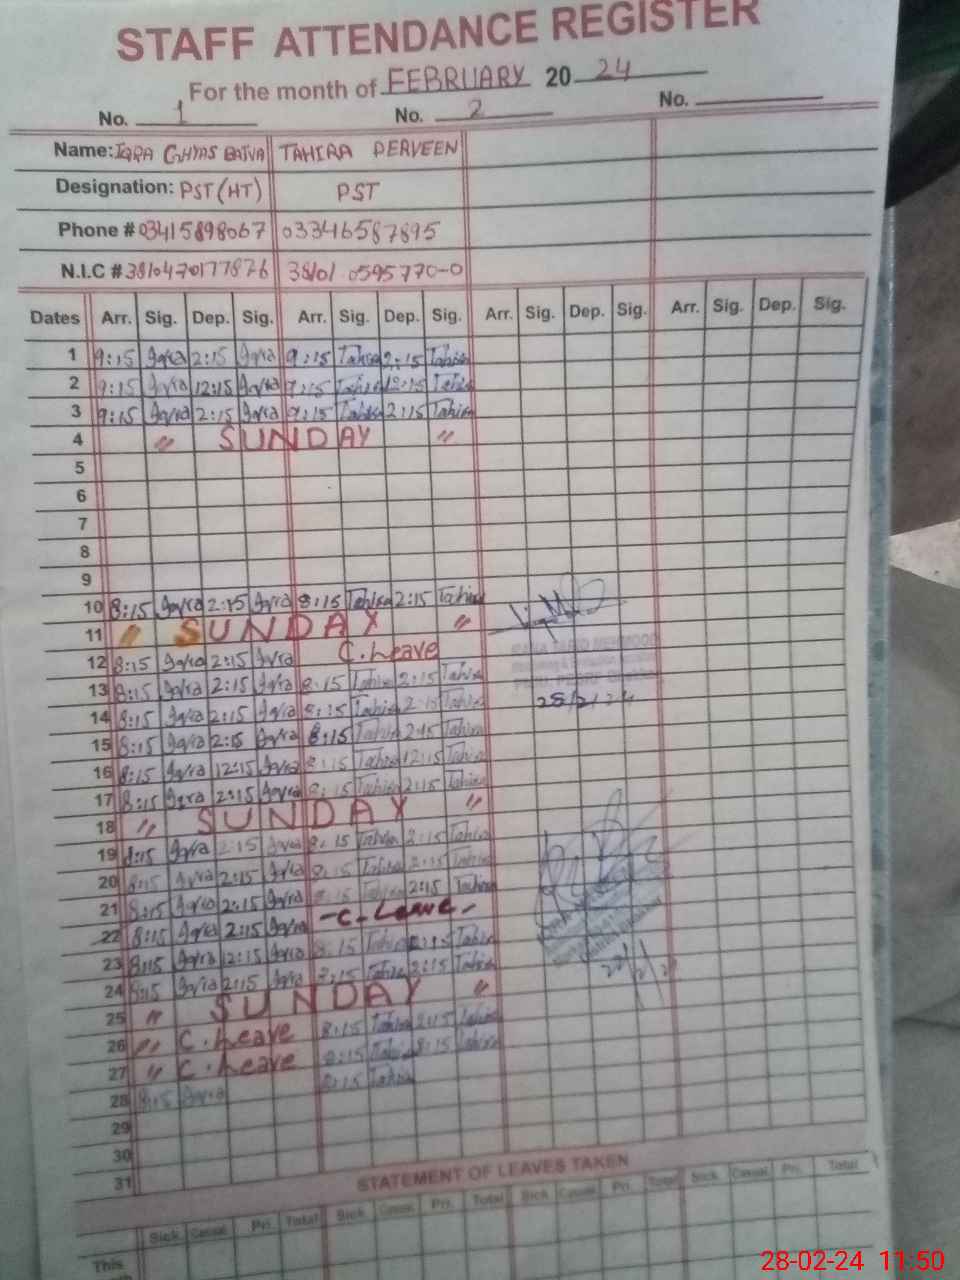 STAFF ATTENDANCE REGISTER
For the month of FEBRUARY 20 24
No. 1 No. 2 No.
Name: IQRA GHYAS BAJVA TAHIRA PERVEEN
Designation: PST (HT) PST
Phone # 03415898067 03346587895
N.I.C # 3810470177876 38101 0595770-0
Dates Arr. Sig. Dep. Sig. Arr. Sig. Dep. Sig. Arr. Sig. Dep. Sig. Arr. Sig. Dep. Sig.
1 9:15 Iqra 2:15 Iqra 9:15 Tahira 2:15 Tahira
2 9:15 Iqra 12:15 Iqra 9:15 Tahira 12:15 Tahira
3 9:15 Iqra 2:15 Iqra 9:15 Tahira 2:15 Tahira
4 " SUNDAY "
5
6
7
8
9
10 8:15 Iqra 2:15 Iqra 8:15 Tahira 2:15 Tahira
11 " SUNDAY "
12 8:15 Iqra 2:15 Iqra C.Leave
13 8:15 Iqra 2:15 Iqra 8:15 Tahira 2:15 Tahira
14 8:15 Iqra 2:15 Iqra 8:15 Tahira 2:15 Tahira 28/2/24
15 8:15 Iqra 2:15 Iqra 8:15 Tahira 2:15 Tahira
16 8:15 Iqra 12:15 Iqra 8:15 Tahira 12:15 Tahira
17 8:15 Iqra 2:15 Iqra 8:15 Tahira 2:15 Tahira
18 " SUNDAY "
19 8:15 Iqra 2:15 Iqra 8:15 Tahira 2:15 Tahira
20 8:15 Iqra 2:15 Iqra 8:15 Tahira 2:15 Tahira
21 8:15 Iqra 2:15 Iqra 8:15 Tahira 2:15 Tahira
22 8:15 Iqra 2:15 Iqra - C. Leave -
23 8:15 Iqra 12:15 Iqra 8:15 Tahira 2:15 Tahira
24 8:15 Iqra 2:15 Iqra 8:15 Tahira 2:15 Tahira
25 " SUNDAY "
26 " C. Leave 8:15 Tahira 2:15 Tahira
27 " C. Leave 8:15 Tahira 8:15 Tahira
28 8:15 Iqra 8:15 Tahira
29
30
31
STATEMENT OF LEAVES TAKEN
Sick Casual Pri. Total Sick Casual Pri. Total Sick Casual Pri. Total Sick Casual Pri. Total
This
28-02-24 11:50